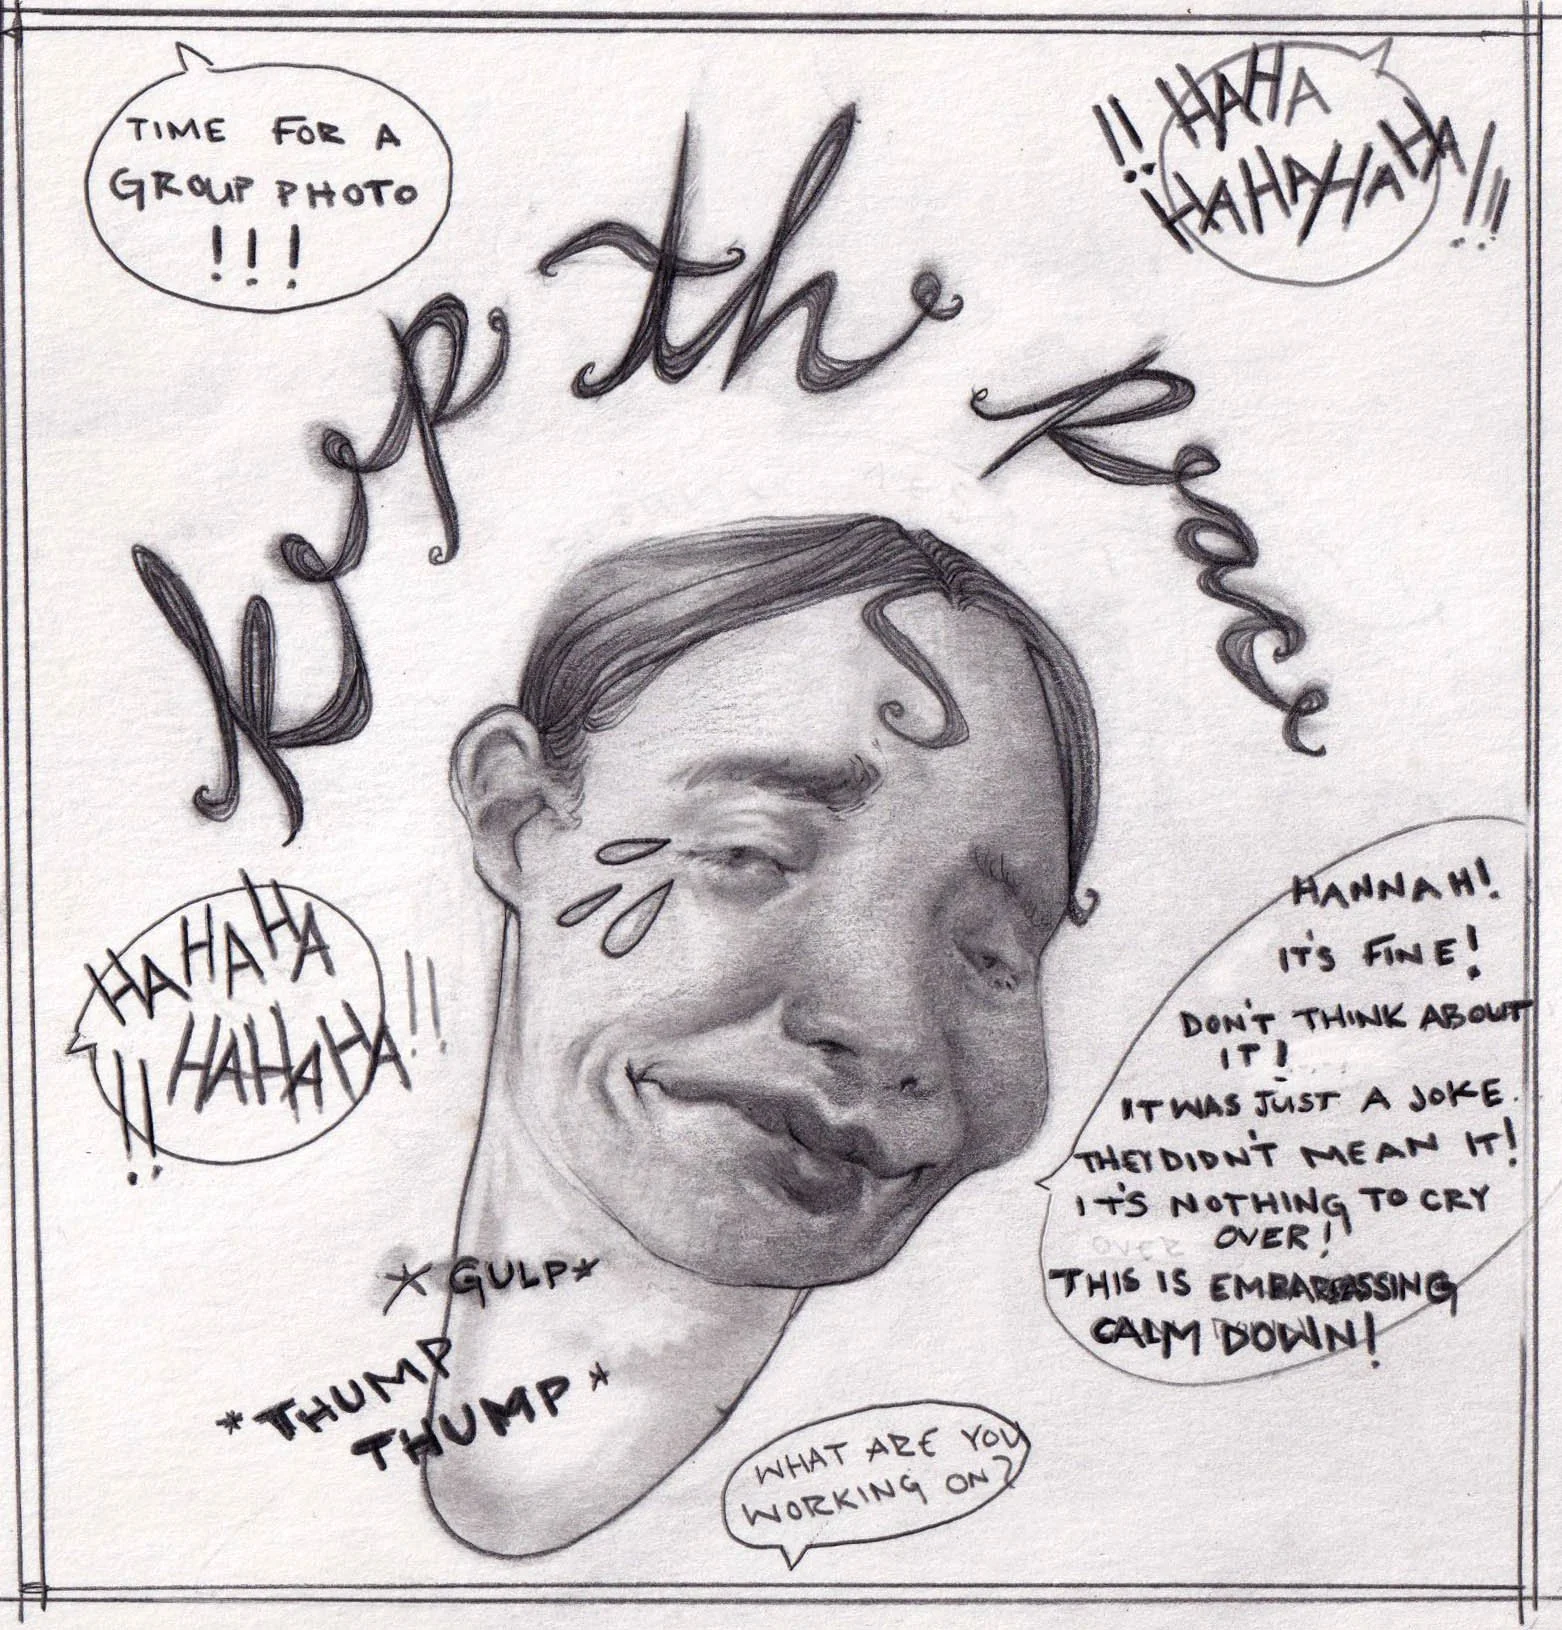 TIME FOR A
GROUP PHOTO
!!!
!! HAHA
HAHAHAHA!!!
keep the Peace
HAHAHA
!! HAHAHA!!
HANNAH!
IT'S FINE!
DON'T THINK ABOUT
IT!
IT WAS JUST A JOKE.
THEY DIDN'T MEAN IT!
IT'S NOTHING TO CRY
OVER!
THIS IS EMBARRASSING
CALM DOWN!
*GULP*
*THUMP
THUMP*
WHAT ARE YOU
WORKING ON?